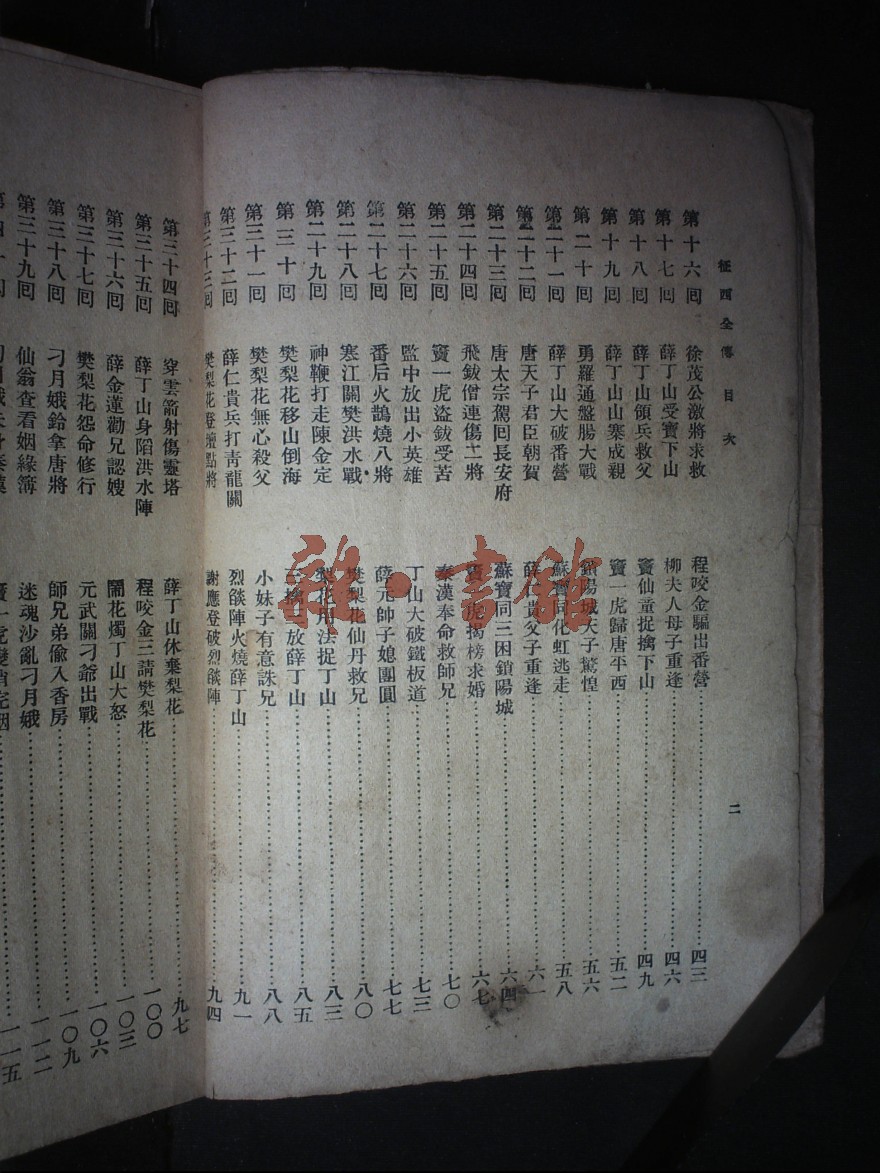 征西全傳 目次 二
第十六囘 徐茂公激將求救 程咬金驅出番營 四三
第十七囘 薛丁山受寶下山 柳夫人母子重逢 四六
第十八囘 薛丁山領兵救父 竇仙童捉擒下山 四九
第十九囘 薛丁山山寨成親 竇一虎歸唐平西 五二
第二十囘 勇羅通盤腸大戰 鎖陽城天子驚惶 五六
第二十一囘 薛丁山大破番營 蘇寶同化虹逃走 五八
第二十二囘 唐天子君臣朝賀 薛仁貴父子重逢 六一
第二十三囘 唐太宗駕囘長安府 蘇寶同三困鎖陽城 六四
第二十四囘 飛鈸僧連傷二將 竇一虎揭榜求婚 六七
第二十五囘 竇一虎盜鈸受苦 秦漢奉命救師兄 七〇
第二十六囘 監中放出小英雄 丁山大破鐵板道 七三
第二十七囘 番后火鵲燒八將 薛元帥子媳團圓 七七
第二十八囘 寒江關樊洪水戰 樊梨花仙丹救兄 八〇
第二十九囘 神鞭打走陳金定 梨花用法捉丁山 八三
第三十囘 樊梨花移山倒海 三擒三放薛丁山 八五
第三十一囘 樊梨花無心殺父 小妹子有意誅兄 八八
第三十二囘 薛仁貴兵打青龍關 烈燄陣火燒薛丁山 九一
第三十三囘 樊梨花登壇點將 謝應登破烈燄陣 九四
第三十四囘 穿雲箭射傷靈塔 薛丁山休棄梨花 九七
第三十五囘 薛丁山身陷洪水陣 程咬金三請樊梨花 一〇〇
第三十六囘 薛金蓮勸兄認嫂 鬧花燭丁山大怒 一〇三
第三十七囘 樊梨花怨命修行 元武關刁爺出戰 一〇六
第三十八囘 刁月娥鈴拿唐將 師兄弟偸入香房 一〇九
第三十九囘 仙翁查看姻緣簿 迷魂沙亂刁月娥 一一二
一一五
雜·書館